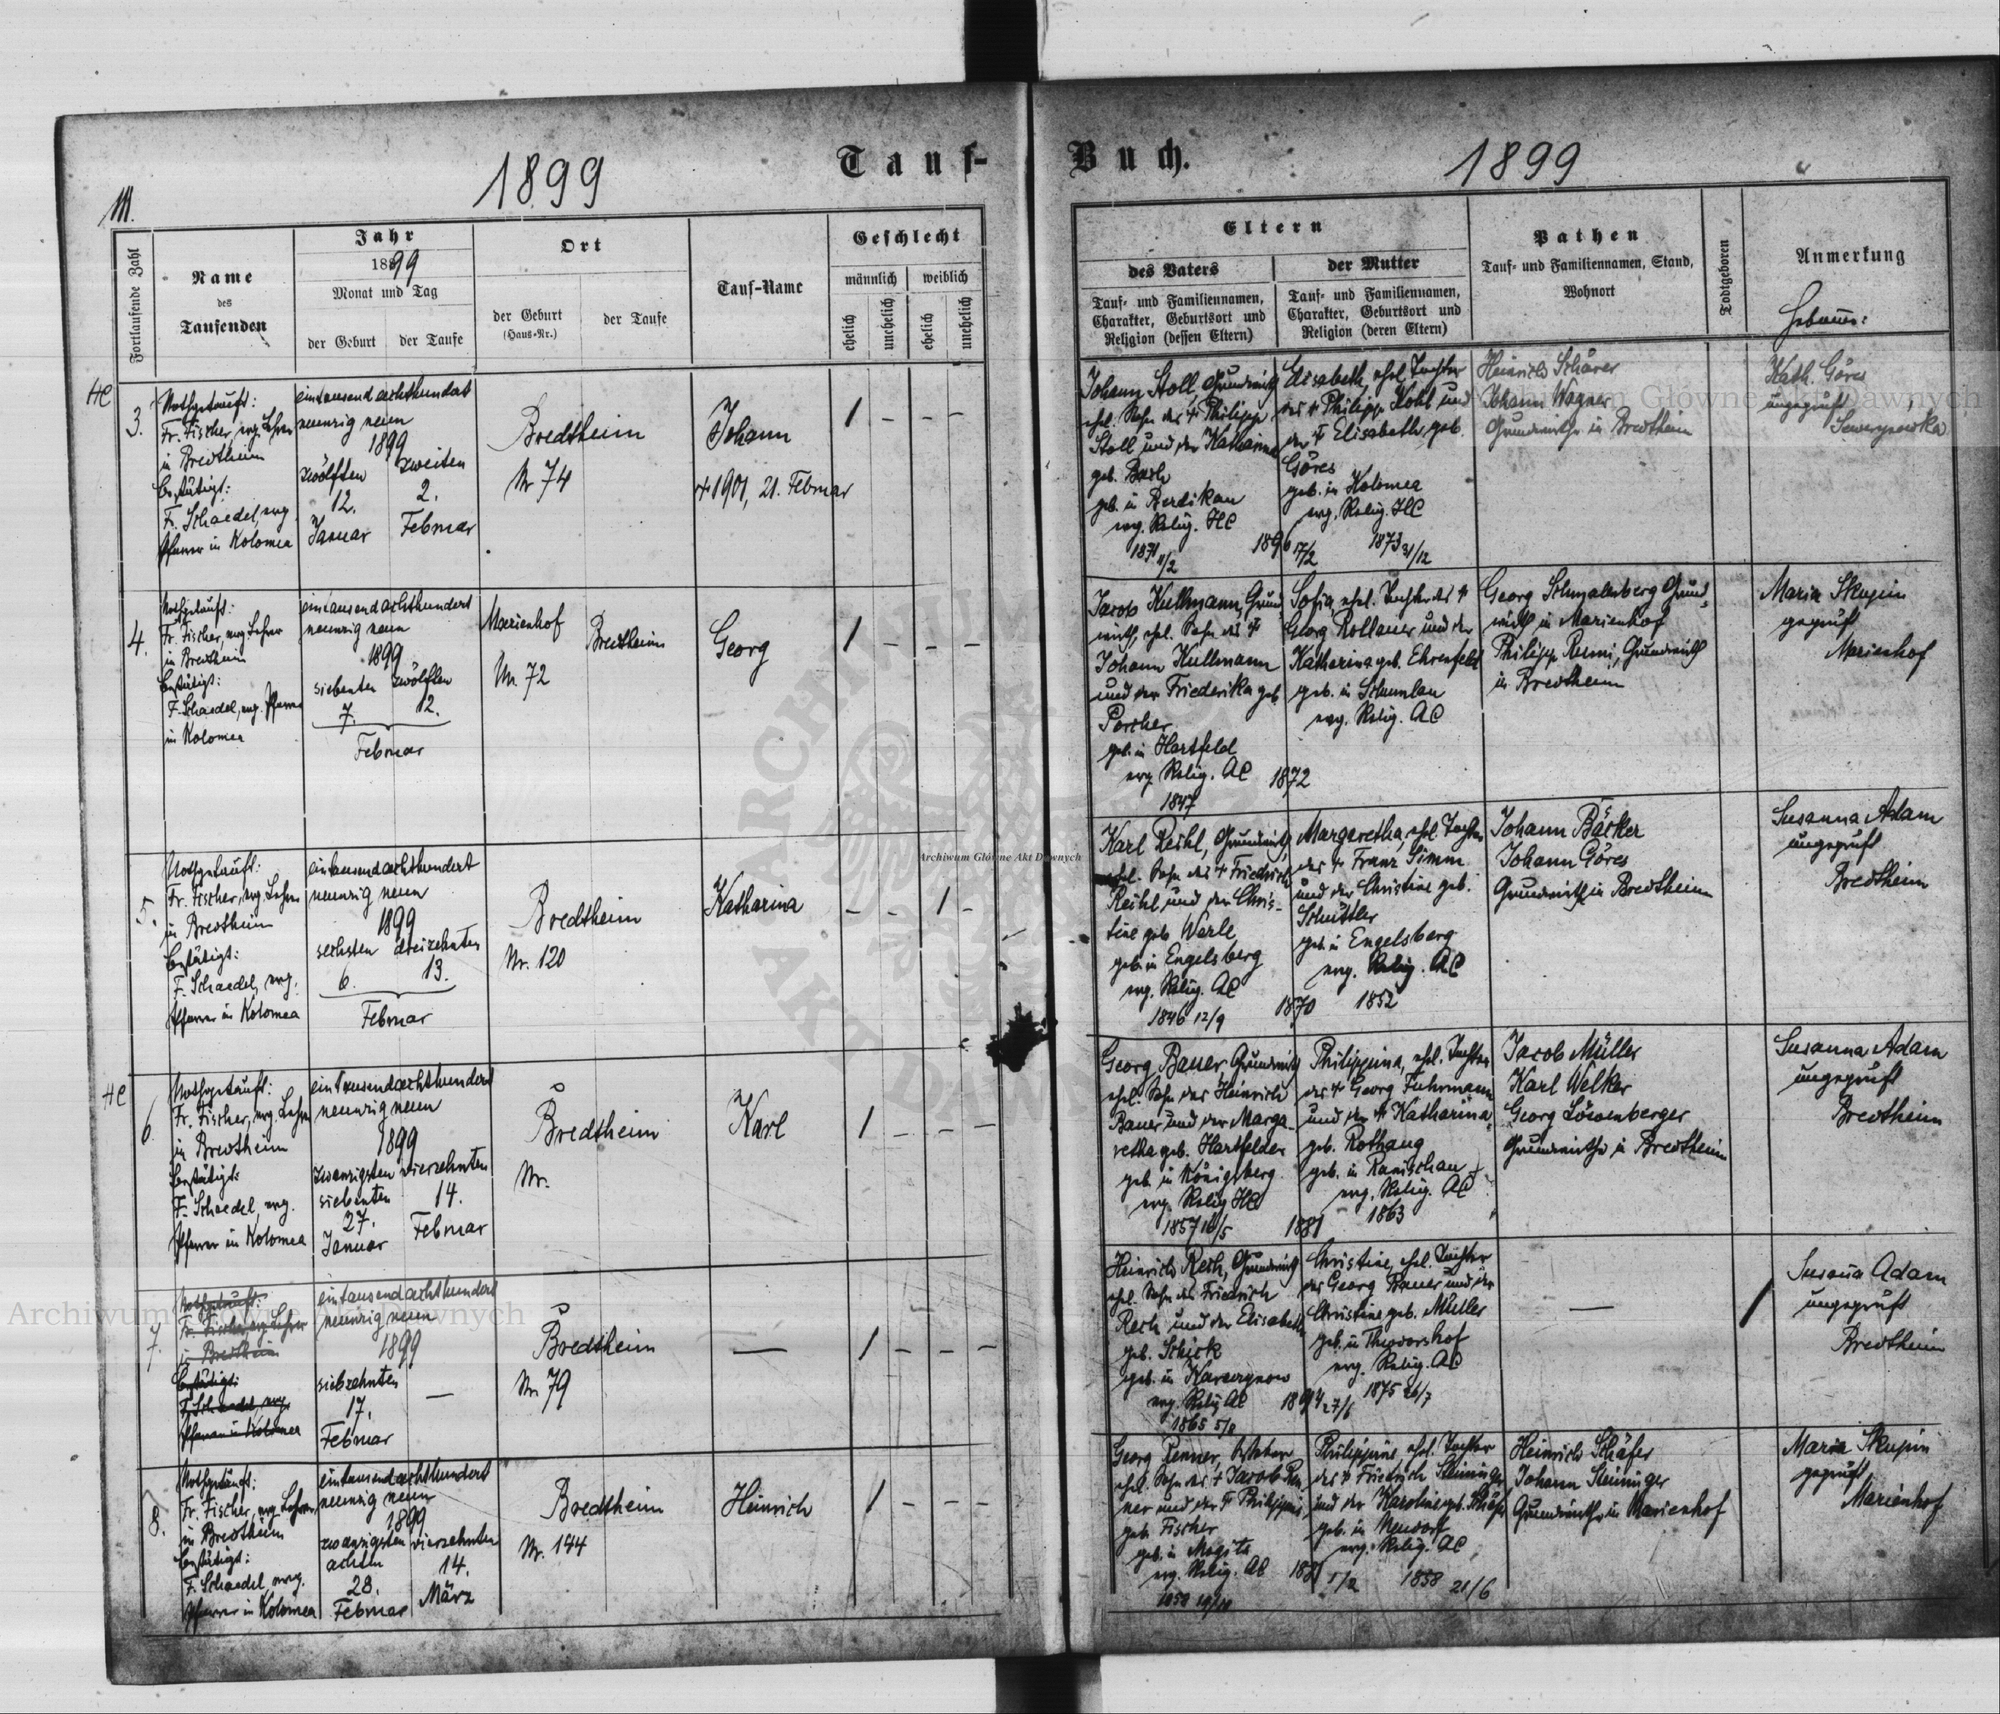 Tauf-
Buch.
1899
1899
III.
Fortlaufende Zahl
Name
des
Taufenden
Jahr
1899
Monat und Tag
der Geburt
der Taufe
Ort
der Geburt
(Haus-Nr.)
der Taufe
Tauf-Name
Geschlecht
männlich
weiblich
ehelich
unehelich
ehelich
unehelich
Eltern
des Vaters
Tauf- und Familiennamen,
Charakter, Geburtsort und
Religion (dessen Eltern)
der Mutter
Tauf- und Familiennamen,
Charakter, Geburtsort und
Religion (deren Eltern)
Pathen
Tauf- und Familiennamen, Stand,
Wohnort
Todtgeboren
Anmerkung
HC
3.
Nothgetauft:
Fr. Fischer, evg. Lehrer
in Bredtheim
bestätigt:
F. Schaedel, evg.
Pfarrer in Kolomea
eintausendachthundert
neunzig neun
1899
zwölften
12.
Januar
zweiten
2.
Februar
Bredtheim
Nr 74
Johann
+ 1901, 21. Februar
1 – – –
Johann Stoll, Grundwirth
ehel. Sohn des + Philipp
Stoll und der Katharina
geb.
geb. in
evg. Relig. HC
1871 11/2
1896 17/2
Elisabeth, ehel. Tochter
des + Philipp Kohl und
der + Elisabeth geb.
Göres
geb. in Kolomea
evg. Relig. HC
1873 31/12
Heinrich Schärer
Johann Wagner
Grundwirthe in Bredtheim
Kath. Göres
ungeprüft
Sewerynowka
4.
Nothgetauft:
Fr. Fischer, evg. Lehrer
in Bredtheim
bestätigt:
F. Schaedel, evg. Pfarrer
in Kolomea
eintausendachthundert
neunzig neun
1899
siebenten zwölften
7. 12.
Februar
Marienhof
Nr. 72
Bredtheim
Georg
1 – – –
Jacob Kullmann, Grund-
wirth, ehel. Sohn des +
Johann Kullmann
und der Friederika geb.
Porcher
geb. in Hartfeld
evg. Relig. AC
1847
1872
Sofia, ehel. Tochter des +
Georg Rollauer und der
Katharina geb. Ehrenfeld
geb. in
evg. Relig. AC
Georg Schmalenberg Grund-
wirth in Marienhof
Philipp Rumi, Grundwirth
in Bredtheim
Maria Skupin
geprüft
Marienhof
5.
Nothgetauft:
Fr. Fischer, evg. Lehrer
in Bredtheim
bestätigt:
F. Schaedel, evg.
Pfarrer in Kolomea
eintausendachthundert
neunzig neun
1899
sechsten dreizehnten
6. 13.
Februar
Bredtheim
Nr. 120
Katharina
– – 1 –
Karl Reihl, Grundwirth,
ehel. Sohn des + Friedrich
Reihl und der Chris-
tine geb. Werle
geb. in Engelsberg
evg. Relig. AC
1846 12/9
1870
Margaretha, ehel. Tochter
des + Franz Simm
und der Christine geb.
Schüttler
geb. in Engelsberg
evg. Relig. AC
1852
Johann Bäcker
Johann Göres
Grundwirthe in Bredtheim
Susanna Adam
ungeprüft
Bredtheim
HC
6.
Nothgetauft:
Fr. Fischer, evg. Lehrer
in Bredtheim
bestätigt:
F. Schaedel, evg.
Pfarrer in Kolomea
eintausendachthundert
neunzig neun
1899
zwanzigsten
siebenten
27.
Januar
vierzehnten
14.
Februar
Bredtheim
Nr.
Karl
1 – – –
Georg Bauer, Grundwirth
ehel. Sohn des Heinrich
Bauer und der Marga-
retha geb. Hartfelder
geb. in Königsberg
evg. Relig. HC
1857 16/5
1881
Philippina, ehel. Tochter
des + Georg Fuhrmann
und der + Katharina
geb. Rothaug
geb. in Ranischau
evg. Relig. AC
1863
Jacob Müller
Karl Welker
Georg Löwenberger
Grundwirthe in Bredtheim
Susanna Adam
ungeprüft
Bredtheim
7.
Nothgetauft:
Fr. Fischer, evg. Lehrer
in Bredtheim
bestätigt:
F. Schaedel, evg.
Pfarrer in Kolomea
eintausendachthundert
neunzig neun
1899
siebzehnten
17.
Februar
–
Bredtheim
Nr. 79
—
1 – – –
Heinrich Rech, Grundwirth
ehel. Sohn des Friedrich
Rech und der Elisabeth
geb. Schick
geb. in
evg. Relig. AC
1865 5/8
1894 27/6
Christine, ehel. Tochter
des Georg Bauer und der
Christine geb. Müller
geb. in Theodorshof
evg. Relig. AC
1875 26/7
—
1
Susana Adam
ungeprüft
Bredtheim
8.
Nothgetauft:
Fr. Fischer, evg. Lehrer
in Bredtheim
bestätigt:
F. Schaedel, evg.
Pfarrer in Kolomea
eintausendachthundert
neunzig neun
1899
zwanzigsten
achten
28.
Februar
vierzehnten
14.
März
Bredtheim
Nr. 144
Heinrich
1 – – –
Georg Renner,
ehel. Sohn des + Jacob Ren-
ner und der + Philippine
geb. Fischer
geb. in
evg. Relig. AC
1858 19/10
1/2
Philippine ehel. Tochter
des + Friedrich Steininger
und der Karoline geb. Schäfer
geb. in Neudorf
evg. Relig. AC
1858 21/6
Heinrich Schäfer
Johann Steininger
Grundwirthe in Marienhof
Maria Skupin
geprüft
Marienhof
Archiwum Główne Akt Dawnych
Archiwum Główne Akt Dawnych
Archiwum Główne Akt Dawnych